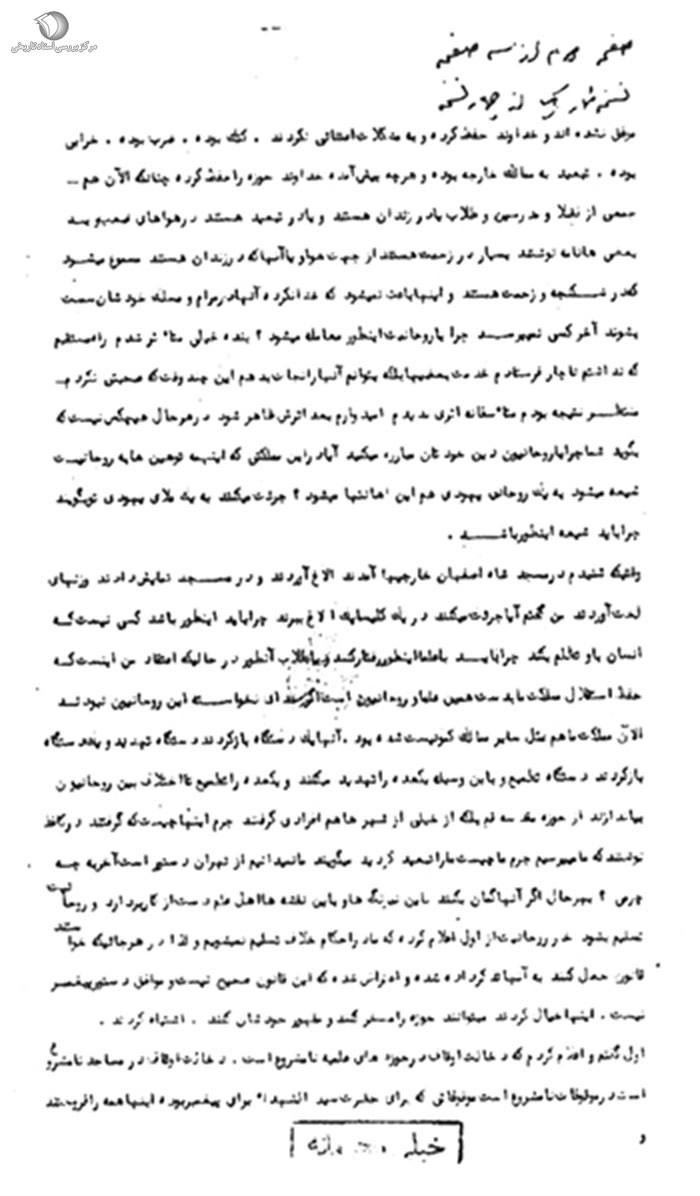 مرکز بررسی اسناد تاریخی
صفحه دوم از سه صفحه
نسخه شماره یک از چهار نسخه
موفق نشده اند و خداوند حفظ کرده و به مشکلات اعتنائی نکردند . کتک بوده . ضرب بوده . خرابی
بوده . تبعید به ممالک خارجه بوده و هرچه پیش آمده خداوند حوزه را حفظ کرده چنانکه الآن هم ــ
جمعی از فضلا و مدرسین و طلاب یا در زندان هستند و یا در تبعید هستند در هواهای
بعضی ها نامه نوشتند بسیار در زحمت هستند از جهت هوا و یا آنها که در زندان هستند مسموع میشود
که در شکنجه و زحمت هستند و اینها باعث نمیشود که خدا نکرده آنها در مرام و مسلک خودشان سست
بشوند آخر کسی نمیپرسد چرا با روحانیت اینطور معامله میشود ؟ بنده خیلی متأثر شدم راه مستقیم
که نداشتم ناچار فرستادم خدمت بعضیها بلکه بتوانم آنها را نجات بدهم این چند وقت که صحبتی نکردم ــ
منتظر نتیجه بودم متأسفانه اثری ندیدم امیدوارم بعد اثرش ظاهر شود در هر حال هیچکس نیست که
بگوید شما چرا با روحانیون دین خودتان مبارزه میکنید آیا در این مملکتی که اینهمه توهین ها به روحانیت
شیعه میشود به یک روحانی یهودی هم این اهانتها میشود ؟ جرئت میکنند به یک ملای یهودی تو بگویند
چرا باید شیعه اینطور باشد .
وقتیکه شنیدم در مسجد شاه اصفهان خارجیها آمدند الاغ آوردند و در مسجد نمایش دادند و زنهای
لخت آوردند من گفتم آیا جرئت میکنند در یک کلیسا یک الاغ ببرند چرا باید اینطور باشد کسی نیست که
انسان باو تظلم بکند چرا باید با علما اینطور رفتار کنند و با طلاب آنطور در حالیکه اعتقاد من اینست که
حفظ استقلال مملکت ما بدست همین علما و روحانیون است اگر خدای نخواسته این روحانیون نبودند
الآن مملکت ما هم مثل سایر ممالک کمونیست شده بود . آنها یک دستگاه باز کردند دستگاه تهدید و یک دستگاه
باز کردند دستگاه تطمیع و باین وسیله یکعده را تهدید میکنند و یکعده را تطمیع تا اختلاف بین روحانیون
بیاندازند از حوزه مقدسه قم بلکه از خیلی از شهرها هم افرادی گرفتند جرم اینها چیست که گرفتند در کاغذ
نوشتند که ما میپرسیم جرم ما چیست ما را تبعید کردید میگویند ما نمیدانیم از تهران دستور است آخر به چه
جرمی ؟ بهرحال اگر آنها گمان بکنند باین نیرنگ ها و باین نقشه ها اهل علم دست از کار بردارد و روحانیت
تسلیم بشود خیر روحانیت از اول اعلام کرده که ما در احکام خلاف تسلیم نمیشویم و لذا در هر جائیکه خواستند
قانون جعل کنند به آنها تذکر داده شده و اعتراض شده که این قانون صحیح نیست و موافق دستور پیغمبر
نیست . اینها خیال کردند میتوانند حوزه را مسخر کنند و مقهور خودشان کنند . اشتباه کردند .
اول گفتم و اعلام کردم که دخالت اوقاف در حوزه های علمیه نامشروع است . دخالت اوقاف در مساجد نامشروع
است در موقوفات نامشروع است موقوفاتی که برای حضرت سید الشهداء برای پیغمبر بوده اینها همه را فروختند
و
خیلی محرمانه